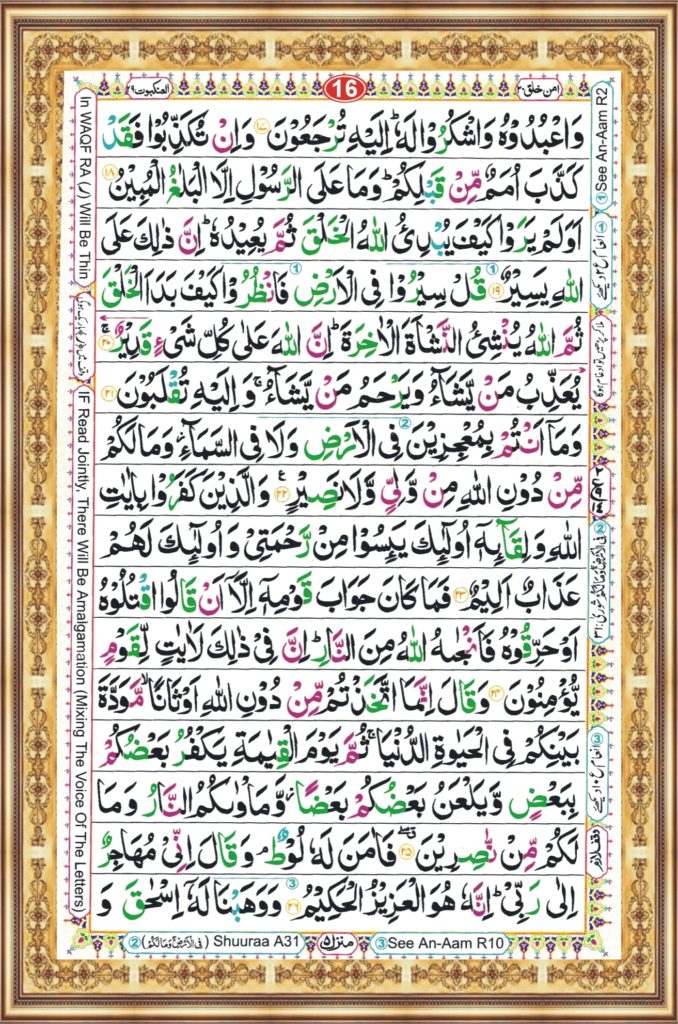 امن خلق ۲۰
16
العنکبوت ۲۹
وَاعْبُدُوْهُ وَاشْكُرُوْا لَهٗ ؕ اِلَيْهِ تُرْجَعُوْنَ ۱۷ وَاِنْ تُكَذِّبُوْا فَقَدْ
كَذَّبَ اُمَمٌ مِّنْ قَبْلِكُمْ ؕ وَمَا عَلَى الرَّسُوْلِ اِلَّا الْبَلٰغُ الْمُبِيْنُ ۱۸
اَوَلَمْ يَرَوْا كَيْفَ يُبْدِئُ اللّٰهُ الْخَلْقَ ثُمَّ يُعِيْدُهٗ ؕ اِنَّ ذٰلِكَ عَلَى
اللّٰهِ يَسِيْرٌ ۱۹ قُلْ سِيْرُوْا فِى الْاَرْضِ فَانْظُرُوْا كَيْفَ بَدَاَ الْخَلْقَ
ثُمَّ اللّٰهُ يُنْشِئُ النَّشْاَةَ الْاٰخِرَةَ ؕ اِنَّ اللّٰهَ عَلٰى كُلِّ شَىْءٍ قَدِيْرٌ ۲۰
يُعَذِّبُ مَنْ يَّشَآءُ وَيَرْحَمُ مَنْ يَّشَآءُ ۚ وَاِلَيْهِ تُقْلَبُوْنَ ۲۱
وَمَاۤ اَنْتُمْ بِمُعْجِزِيْنَ فِى الْاَرْضِ وَلَا فِى السَّمَآءِ ؗ وَمَا لَكُمْ
مِّنْ دُوْنِ اللّٰهِ مِنْ وَّلِىٍّ وَّلَا نَصِيْرٍ ۲۲ ع وَالَّذِيْنَ كَفَرُوْا بِاٰيٰتِ
اللّٰهِ وَلِقَآئِهٖۤ اُولٰٓئِكَ يَئِسُوْا مِنْ رَّحْمَتِىْ وَاُولٰٓئِكَ لَهُمْ
عَذَابٌ اَلِيْمٌ ۲۳ فَمَا كَانَ جَوَابَ قَوْمِهٖۤ اِلَّاۤ اَنْ قَالُوا اقْتُلُوْهُ
اَوْ حَرِّقُوْهُ فَاَنْجٰىهُ اللّٰهُ مِنَ النَّارِ ؕ اِنَّ فِىْ ذٰلِكَ لَاٰيٰتٍ لِّقَوْمٍ
يُّؤْمِنُوْنَ ۲۴ وَقَالَ اِنَّمَا اتَّخَذْتُمْ مِّنْ دُوْنِ اللّٰهِ اَوْثَانًا ۙ مَّوَدَّةَ
بَيْنِكُمْ فِى الْحَيٰوةِ الدُّنْيَا ۚ ثُمَّ يَوْمَ الْقِيٰمَةِ يَكْفُرُ بَعْضُكُمْ
بِبَعْضٍ وَّيَلْعَنُ بَعْضُكُمْ بَعْضًا ؗ وَّمَاْوٰىكُمُ النَّارُ وَمَا
لَكُمْ مِّنْ نّٰصِرِيْنَ ۲۵ فَاٰمَنَ لَهٗ لُوْطٌ ۘ وَقَالَ اِنِّىْ مُهَاجِرٌ
اِلٰى رَبِّىْ ؕ اِنَّهٗ هُوَ الْعَزِيْزُ الْحَكِيْمُ ۲۶ وَوَهَبْنَا لَهٗۤ اِسْحٰقَ وَ
① See An-Aam R2
② فی الارض وما لکم شوریٰ ۳۱
وقف لازم
In WAQF RA (ر) Will Be Thin
IF Read Jointly, There Will Be Amalgamation (Mixing The Voice Of The Letters)
③ See An-Aam R10
منزل ۵
② (فی الارض وما لکم) Shuuraa A31